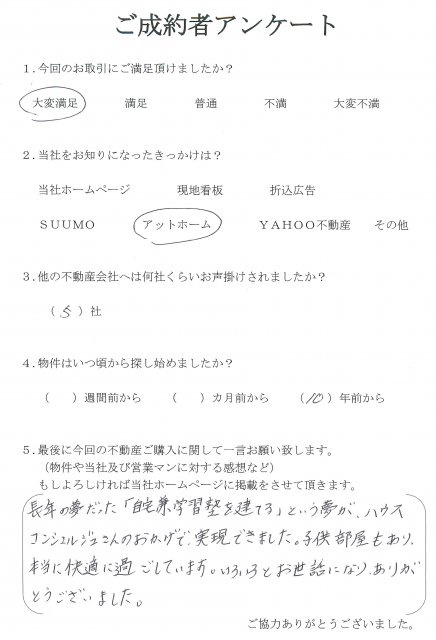 ご成約者アンケート
1.今回のお取引にご満足頂けましたか?
大変満足 満足 普通 不満 大変不満
2.当社をお知りになったきっかけは?
当社ホームページ 現地看板 折込広告
SUUMO アットホーム YAHOO不動産 その他
3.他の不動産会社へは何社くらいお声掛けされましたか?
(5)社
4.物件はいつ頃から探し始めましたか?
( )週間前から ( )カ月前から (10)年前から
5.最後に今回の不動産ご購入に関して一言お願い致します。
(物件や当社及び営業マンに対する感想など)
もしよろしければ当社ホームページに掲載をさせて頂きます。
長年の夢だった「自宅兼学習塾を建てる」という夢が、ハウス
コンシェルジュさんのおかげで、実現できました。子供部屋もあり、
本当に快適に過ごしています。いろいろとお世話になり、ありが
とうございました。
ご協力ありがとうございました。